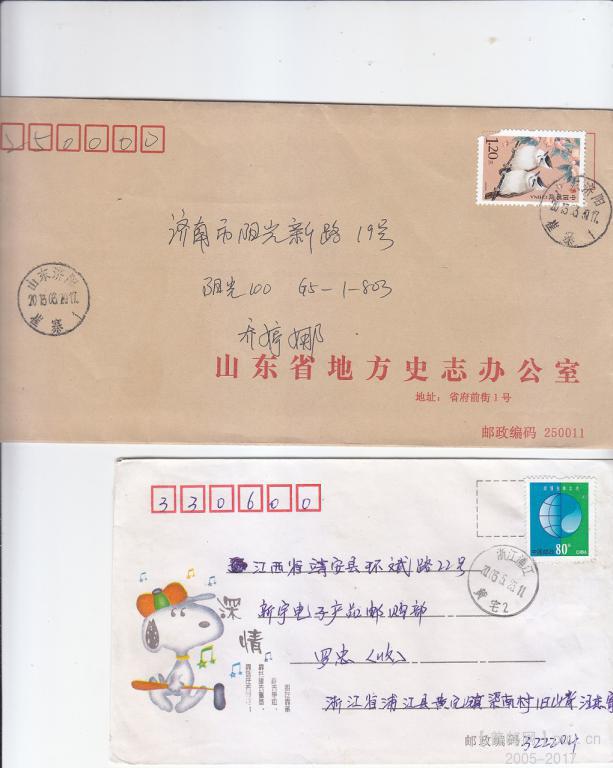 250000
1.20元
中国邮政 CHINA
山东济阳
2013.03.20.17
崔寨
1
济南市阳光新路19号
山东济阳
2013.03.20.17.
崔寨 1
阳光100 G5-1-803
乔婷娜
山东省地方史志办公室
地址: 省府前街1号
邮政编码 250011
330600
中国邮政 80分 CHINA
浙江浦江
黄宅2
江西省靖安县环城路22号
新宇电子产品邮购部
深情
罗忠(收)
浙江省浦江县黄宅镇梁南村旧山背
邮政编码 322204
2005-2017